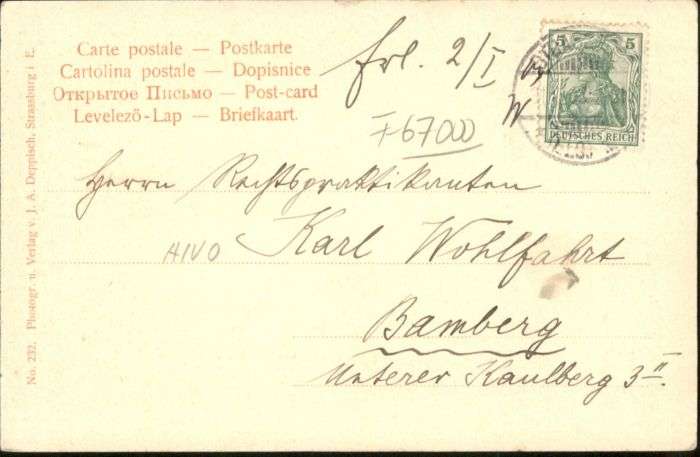 Carte postale — Postkarte
Cartolina postale — Dopisnice
Открытое Письмо — Post-card
Levelező-Lap — Briefkaart.
frl. 2/I
5 5
DEUTSCHES REICH
F67000
Herrn Rechtspraktikanten
AIVO
Karl Wohlfahrt
Bamberg
Unterer Kaulberg 3II
No. 232. Photogr. u. Verlag v. J. A. Deppisch, Strassburg i. E.